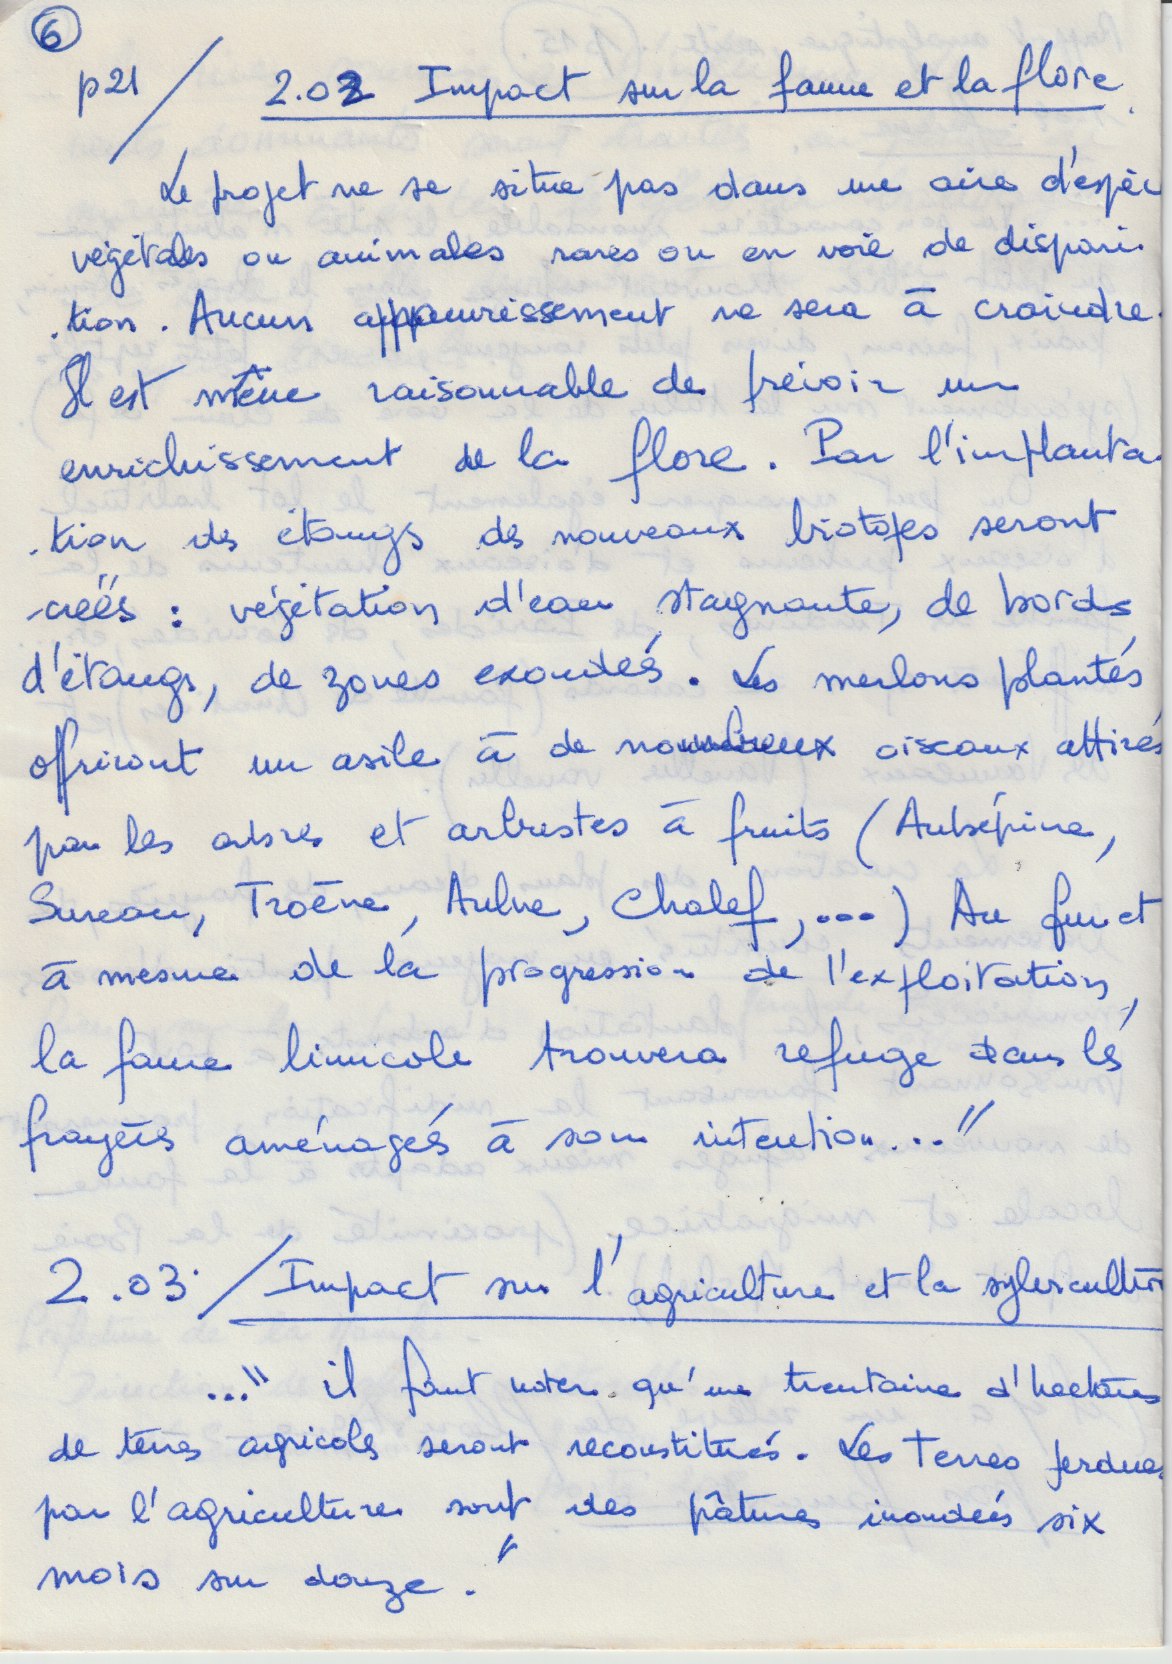 6
p21 / 2.02 Impact sur la faune et la flore.
Le projet ne se situe pas dans une aire d'espèc
végétales ou animales rares ou en voie de dispari-
-tion. Aucun appauvrissement ne sera à craindre.
Il est même raisonnable de prévoir un
enrichissement de la flore. Par l'implanta-
-tion des étangs de nouveaux biotopes seront
créés : végétation d'eau stagnante, de bords
d'étangs, de zones exondées. Les merlons plantés
offriront un asile à de nombreux oiseaux attirés
par les arbres et arbustes à fruits (Aubépine,
Sureau, Troène, Aulne, Chalef,...) Au fur et
à mesure de la progression de l'exploitation,
la faune limicole trouvera refuge dans les
frayères aménagés à son intention..."
2.03. / Impact sur l'agriculture et la sylviculture
..." il faut noter qu'une trentaine d'hectares
de terres agricoles seront reconstitués. Les Terres perdues
par l'agriculture sont des pâtures inondées six
mois sur douze."